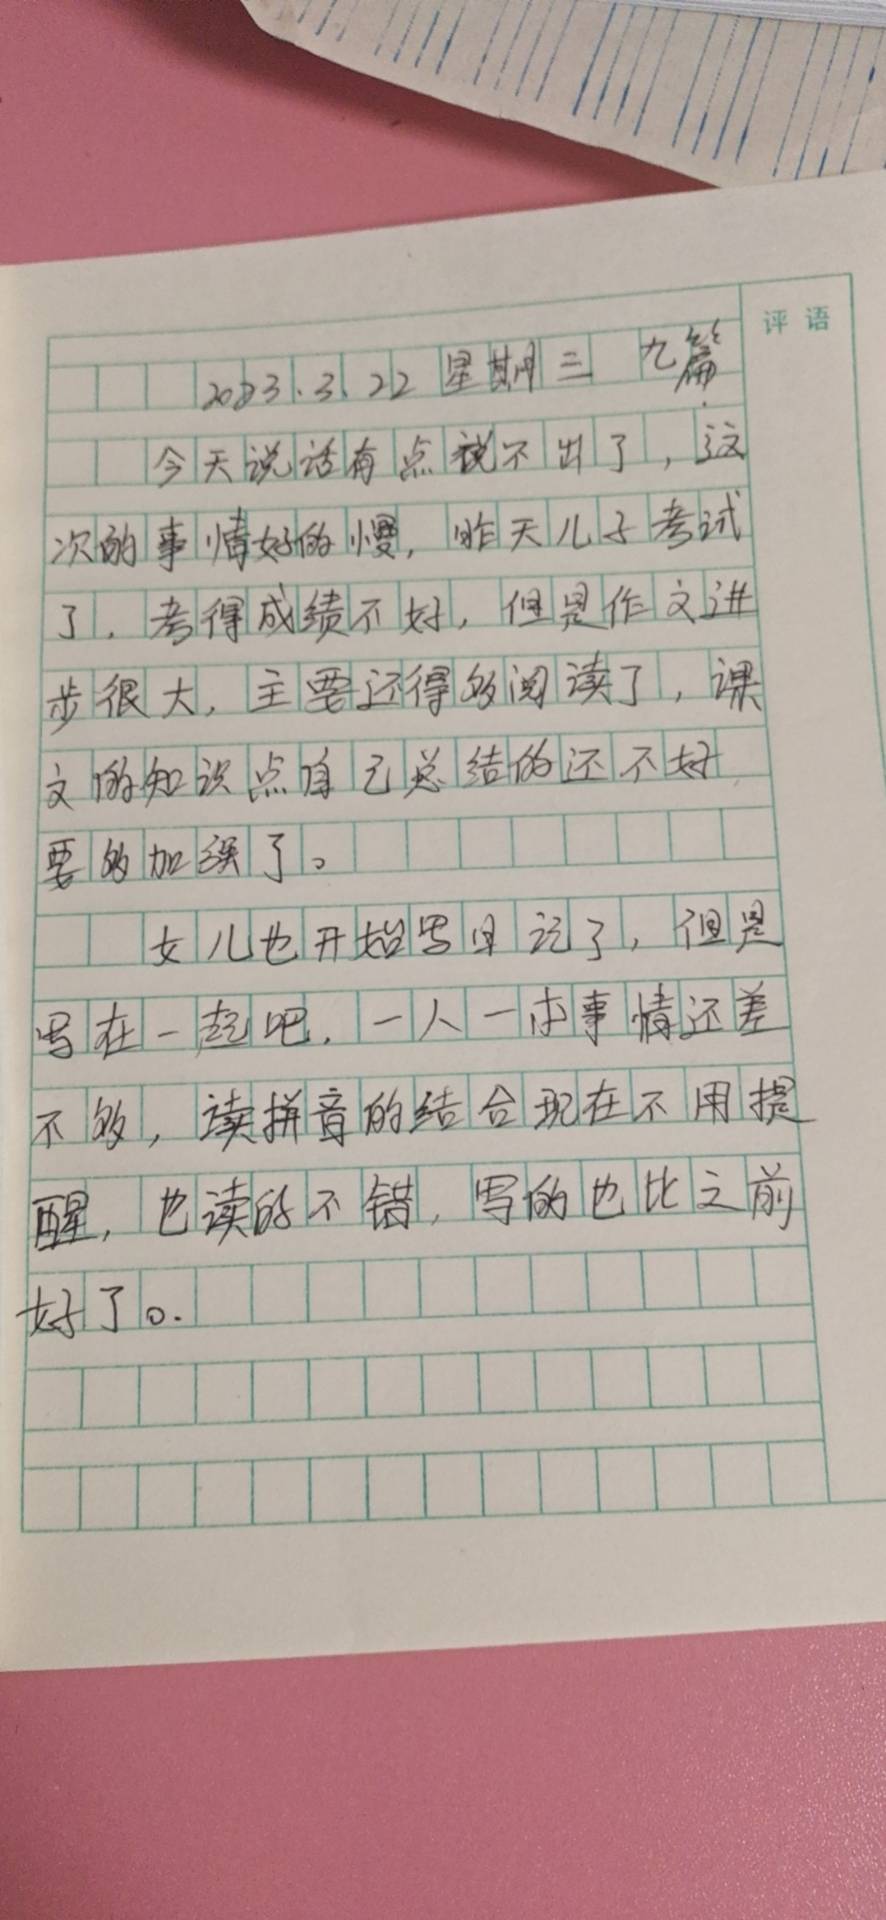 评语
2023.3.22 星期三 九篇
今天说话有点说不出了，这
次的事情好的慢，昨天儿子考试
了，考得成绩不好，但是作文进
步很大，主要还得多阅读了，课
文的知识点自己总结的还不好
要多加强了。
女儿也开始写日记了，但是
写在一起吧，一人一本事情还差
不多，读拼音的结合现在不用提
醒，也读的不错，写的也比之前
好了。